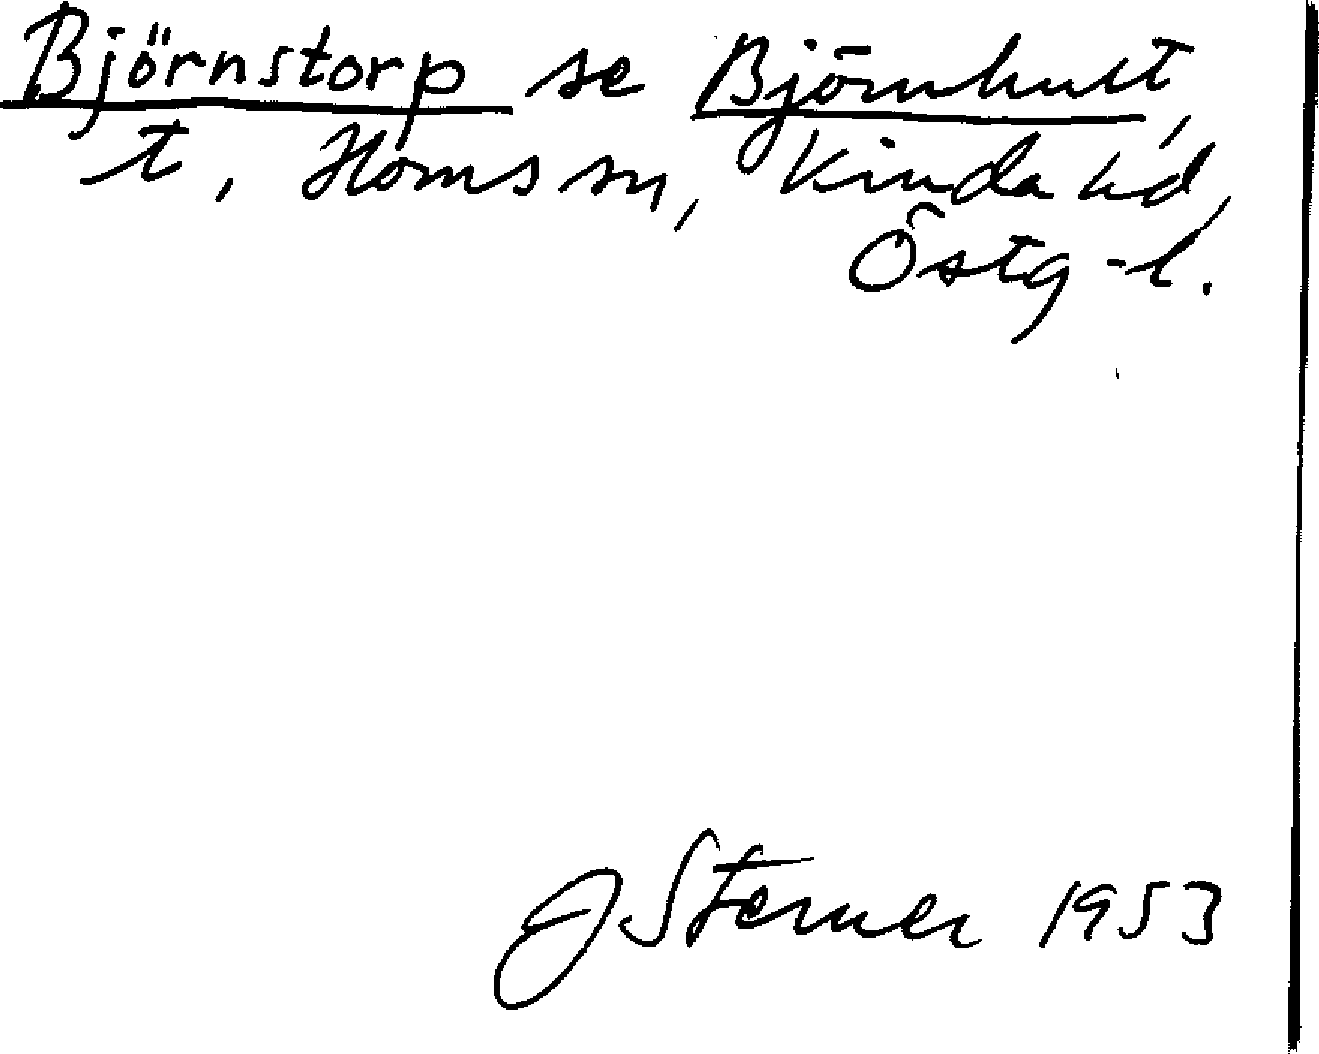 Björnstorp se Björnhult,
t, Horns sn, Kinda hd,
Östg-l.
J Sterner 1953